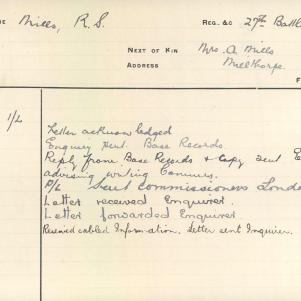 ME Mills, R.S. REG. &C 27th Battl
NEXT OF KIN Mrs. A Mills
ADDRESS Millthorpe
F
1/L Letter acknowledged
Enquiry sent Base Records.
Reply from Base Records & Copy sent E
advising writing Commrs.
P/L Sent Commissioners Londo
Letter received Enquirer.
Letter forwarded Enquirer.
Received cabled Information. Letter sent Inquirer.